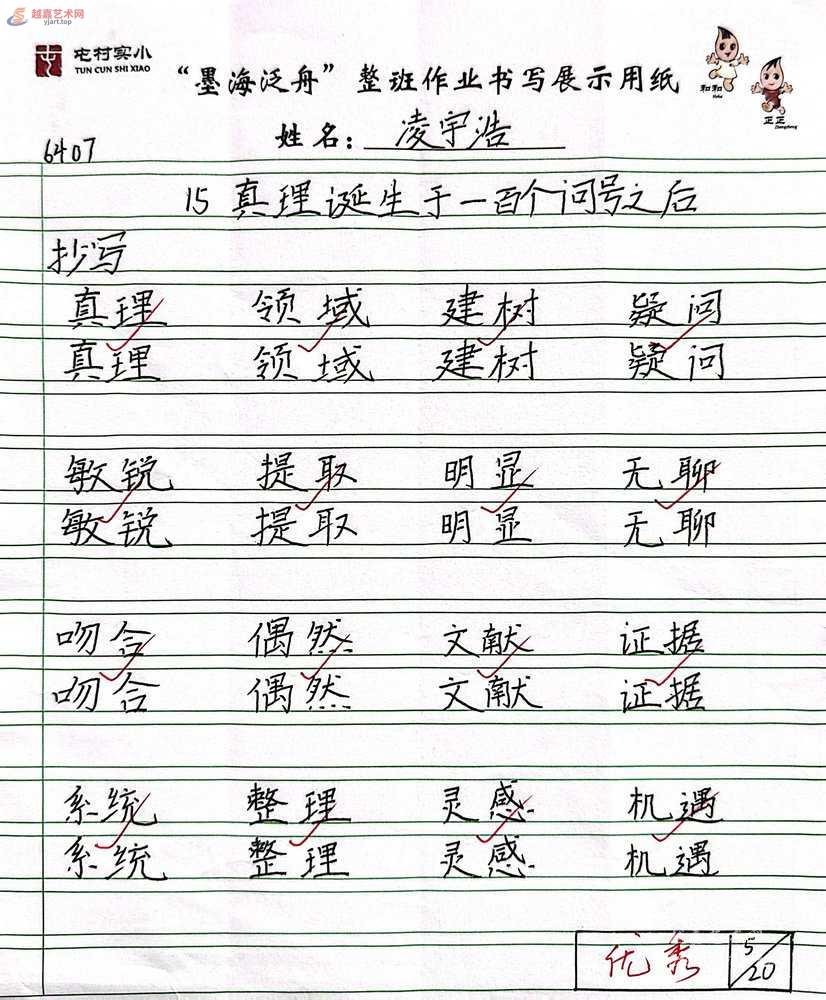 越嘉艺术网
yjart.top
屯村实小
TUN CUN SHI XIAO
“墨海泛舟”整班作业书写展示用纸
和和
Hehe
正正
Zhengzheng
6407
姓名：凌宇浩
15 真理诞生于一百个问号之后
抄写
真理 领域 建树 疑问
真理 领域 建树 疑问
敏锐 提取 明显 无聊
敏锐 提取 明显 无聊
吻合 偶然 文献 证据
吻合 偶然 文献 证据
系统 整理 灵感 机遇
系统 整理 灵感 机遇
优秀 5/20